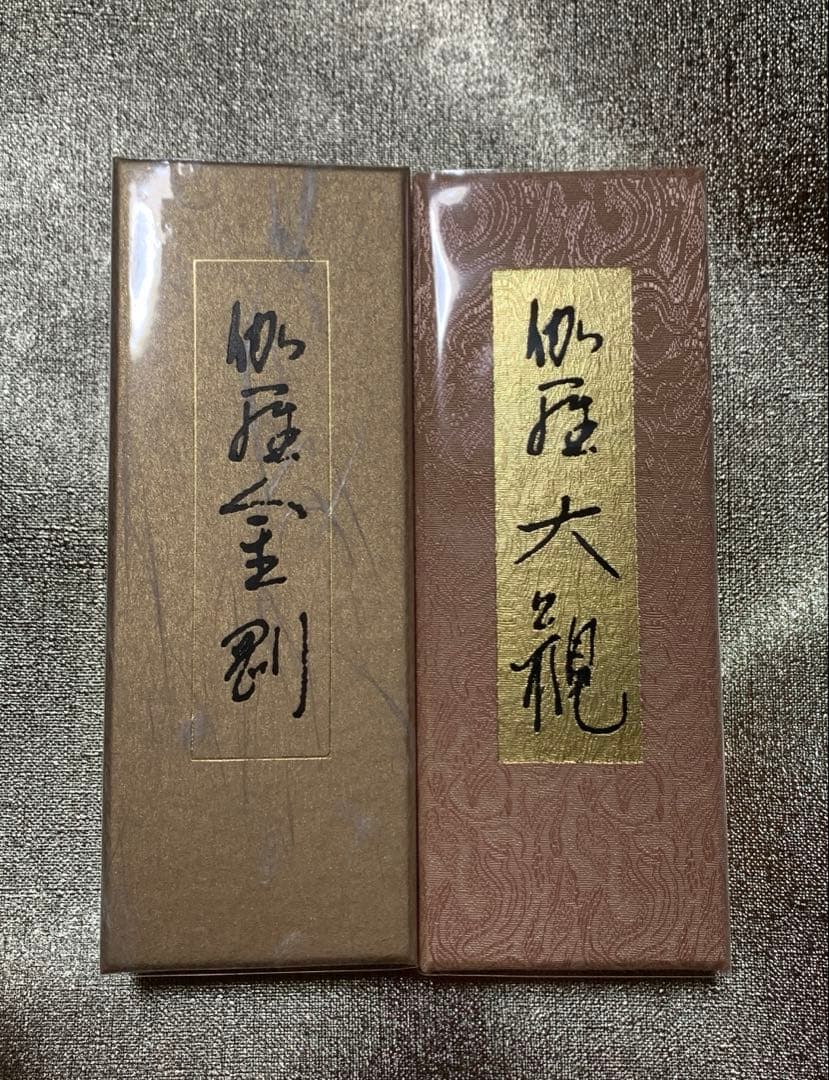 伽羅金剛
伽羅大観